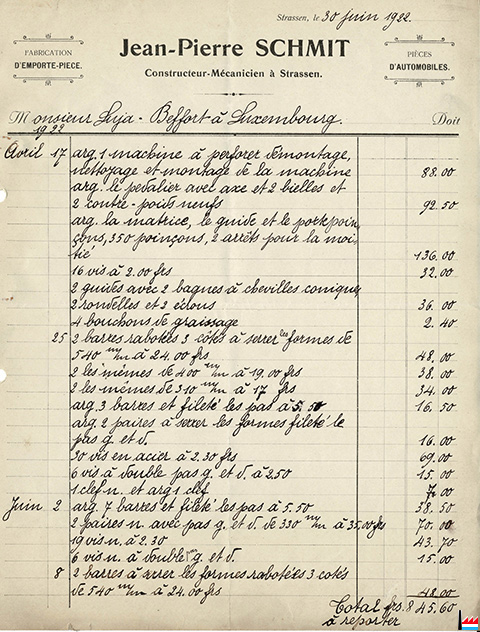 Strassen, le 30 juin 1922.
FABRICATION
D'EMPORTE-PIÈCE.
Jean-Pierre SCHMIT
Constructeur-Mécanicien à Strassen.
PIÈCES
D'AUTOMOBILES.
Monsieur Luja - Beffort à Luxembourg. Doit
1922
Avril 17 arg. 1 machine à perforer démontage,
nettoyage et montage de la machine 88.00
arg. le pedalier avec axe et 2 bielles et
2 contre-poids neufs 92.50
arg. la matrice, le guide et le porte poin,
çons, 350 poinçons, 2 arrêts pour la moi-
tié 136.00
16 vis à 2.00 frs 32.00
2 guides avec 2 bagues à chevilles coniques
2 rondelles et 2 écrous 36.00
4 bouchons de graissage 2.40
25 2 barres rabotés 3 côtés à serrer les formes de
540 m/m à 24.00 frs 48.00
2 les mêmes de 400 m/m à 19.00 frs 38.00
2 les mêmes de 310 m/m à 17 frs 34.00
arg. 3 barres et fileté les pas à 5.50 16.50
arg. 2 paires à serrer les formes fileté le
pas g. et d. 16.00
30 vis en acier à 2.30 frs 69.00
6 vis à double pas g. et d. à 2.50 15.00
1 clef n. et arg. 1 clef 7.00
Juin 2 arg. 7 barres et fileté les pas à 5.50 38.50
2 paires n. avec pas g. et d. de 330 m/m à 35.00 frs 70.00
19 vis n. à 2.30 43.70
6 vis n. à double pas g. et d. 15.00
8 2 barres à serrer les formes rabotées 3 cotés
de 540 m/m à 24.00 frs 48.00
Total frs. 845.60
à reporter